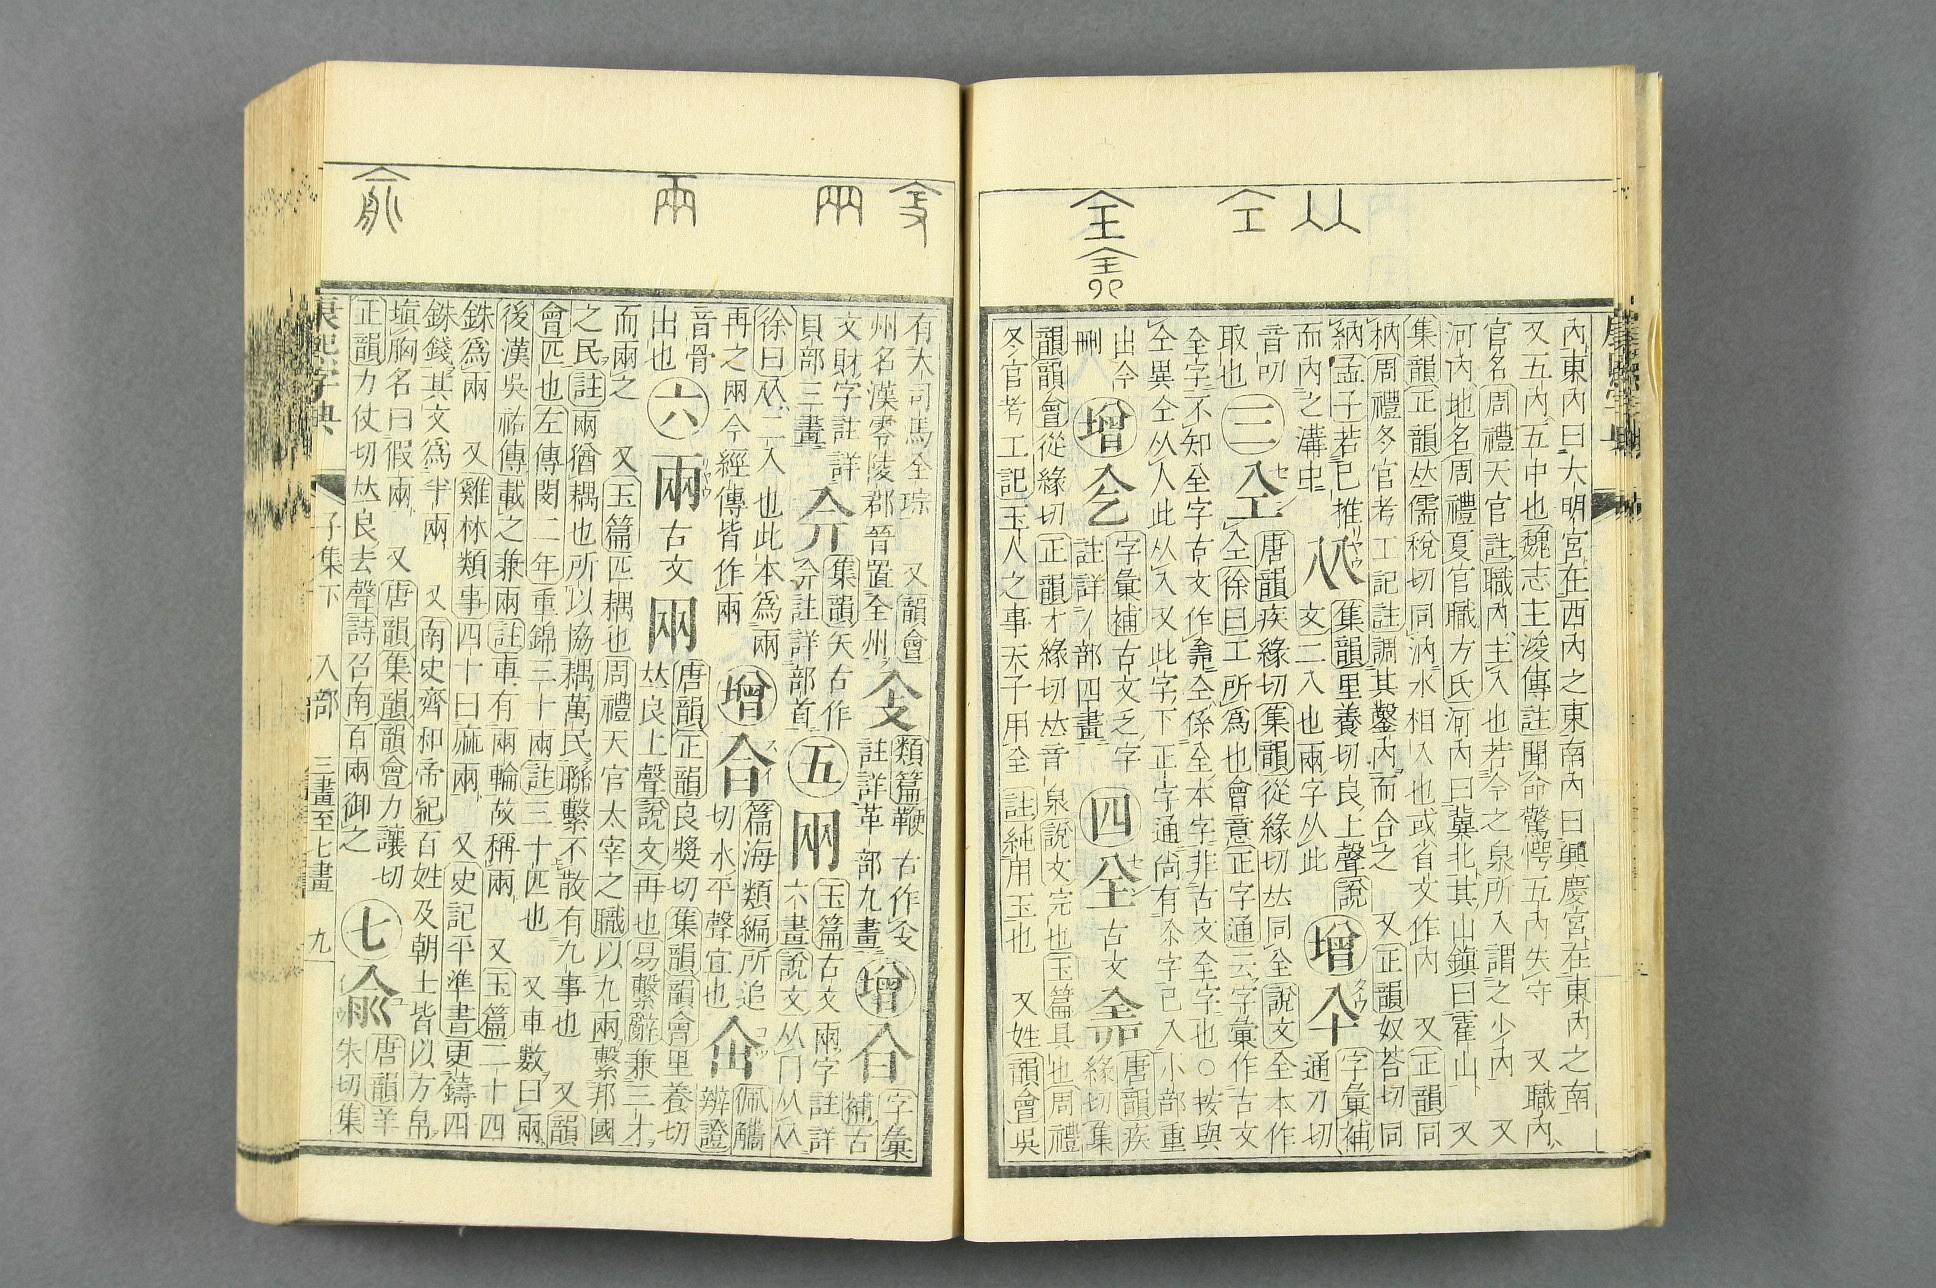 康熙字典
內東內曰大明宮在西內之東南內曰興慶宮在東內之南
又五內五中也魏志王浚傳註聞命驚愕五內失守 又職內
官名周禮天官註職內主入也若今之泉所入謂之少內 又
河內地名周禮夏官職方氏河內曰冀北其山鎮曰霍山 又
集韻正韻𠀤儒稅切同汭水相入也或省文作內 又正韻同
枘周禮冬官考工記註調其鑿內而合之 又正韻奴荅切同
納孟子若已推
而內之溝中
𠓜
集韻里養切良上聲說
文二入也兩字从此
增
字彙補
通刀切
音叨
取也
三
仝
唐韻疾緣切集韻從緣切𠀤同全說文全本作
仝徐曰工所爲也會意正字通云字彙作古文
全字不知全字古文作𠓴仝係全本字非古文全字也○按與
仝異仝从人此从入又此字下正字通尚有尒字已入小部重
出今
刪
增
字彙補古文乏字
註詳丿部四畫
四
全
古文
𠓴
唐韻疾
緣切集
韻韻會從緣切正韻才緣切𠀤音泉說文完也玉篇具也周禮
冬官考工記玉人之事天子用全 註純用玉也 又姓韻會吳
有大司馬全琮 又韻會
州名漢零陵郡晉置全州
㒰
類篇鞭古作㒰
註詳革部九畫
增
字彙
補古
文財字註詳
貝部三畫
集韻矢古作
註詳部首
五
㒳
玉篇古文兩字註詳
六畫說文从冂从从
徐曰从二入也此本爲㒳
再之㒳今經傳皆作兩
增
篇海類編所追
切水平聲宜也
佩觿
辨證
音骨
出也
六
兩
古文
㒳
唐韻正韻良奬切集韻韻會里養切
𠀤良上聲說文再也易繫辭兼三才
而兩之 又玉篇匹耦也周禮天官太宰之職以九兩繫邦國
之民註兩猶耦也所以協耦萬民聯繫不散有九事也 又韻
會匹也左傳閔二年重錦三十兩註三十匹也 又車數曰兩
後漢吳祐傳載之兼兩註車有兩輪故稱兩 又玉篇二十四
銖爲兩 又雞林類事四十曰麻兩 又史記平準書更鑄四
銖錢其文爲半兩 又南史齊和帝紀百姓及朝士皆以方帛
塡胸名曰假兩 又唐韻集韻韻會力讓切
正韻力仗切𠀤良去聲詩召南百兩御之
七
兪
唐韻羊
朱切集
康熙字典
子集下 入部 三畫至七畫 九